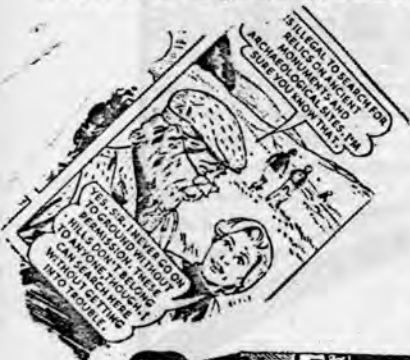 IS ILLEGAL TO SEARCH FOR
RELICS ON ANCIENT
MONUMENTS AND
ARCHAEOLOGICAL SITES. I'M
SURE YOU KNOW THAT.
YES, SIR. I NEVER GO ON
TO GROUND WITHOUT
PERMISSION. THESE
HILLS DON'T BELONG
TO ANYONE, THOUGH. I
CAN SEARCH HERE
WITHOUT GETTING
INTO TROUBLE.